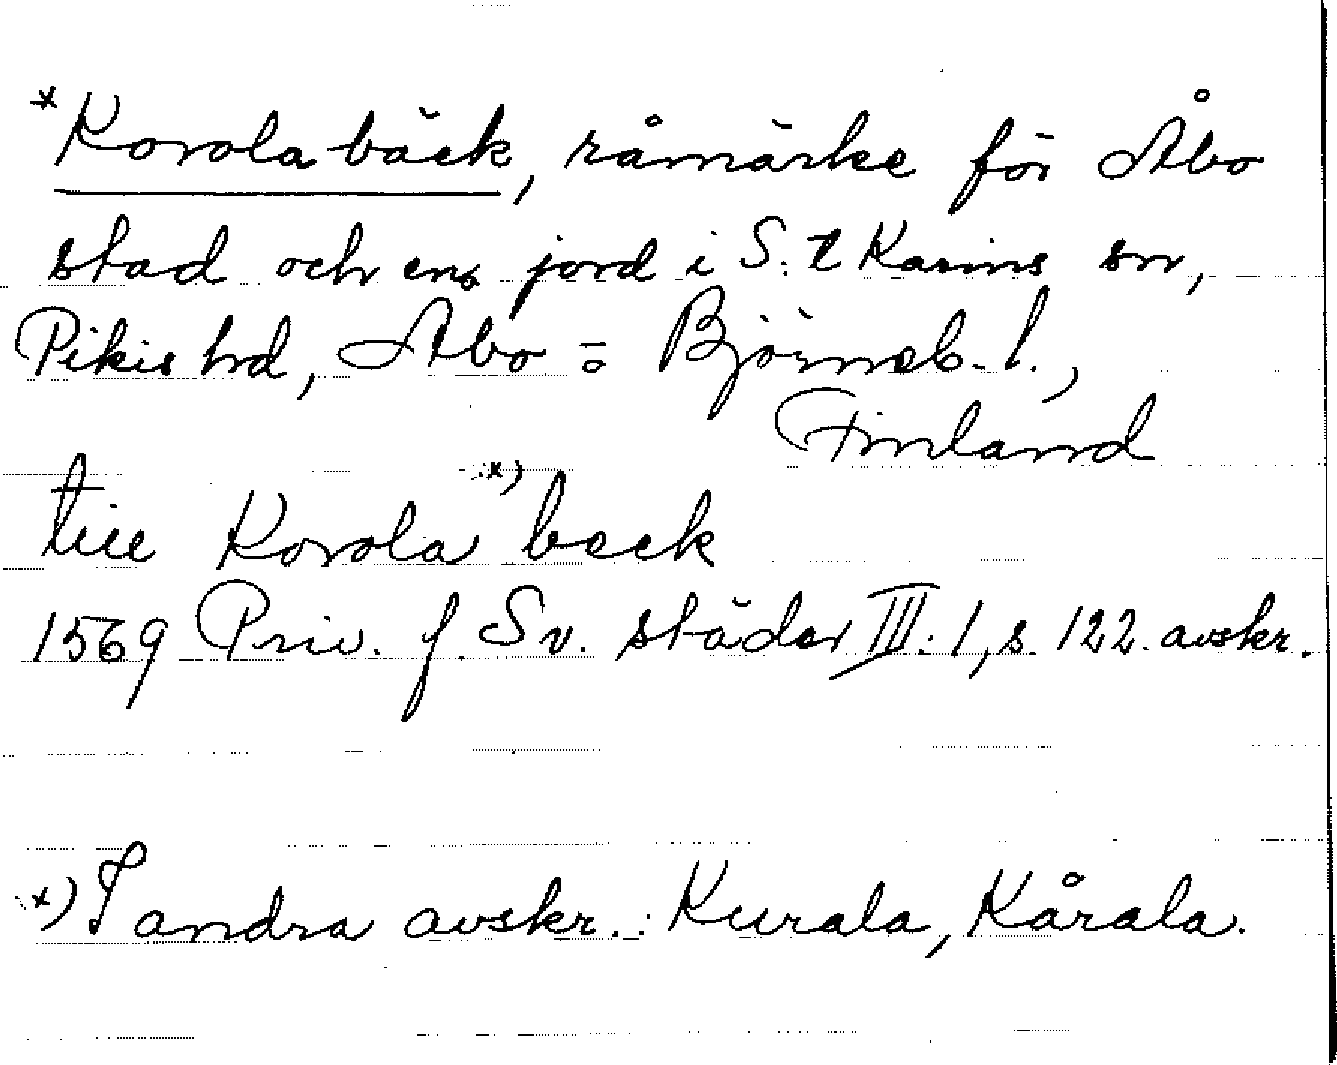 *Korola bäck, råmärke för Åbo
stad och en jord i S:t Karins sn,
Pikis hd, Åbo = o Björneb. l.,
Finland
till Korola *) beck
1569 Priv. f. Sv. städer III:1, s. 122. avskr.
*) I andra avskr.: Kurala, Kårala.